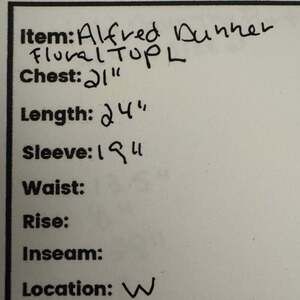 Item: Alfred Dunner
Floral Top L
Chest: 21"
Length: 24"
Sleeve: 19"
Waist:
Rise:
Inseam:
Location: W